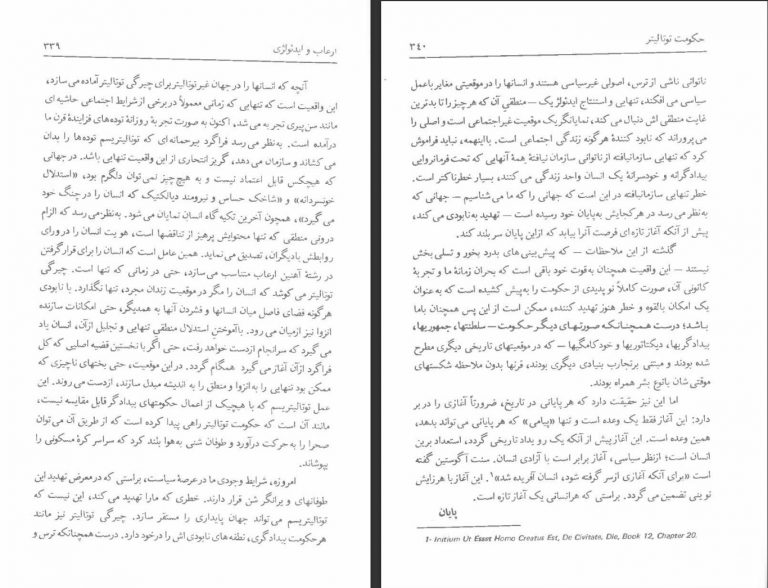 ارعاب و ایدئولژی ۳۳۹
آنچه که انسانها را در جهان غیر توتالیتر برای چیرگی توتالیتر آماده می سازد،
این واقعیت است که تنهایی که زمانی معمولاً در برخی از شرایط اجتماعی حاشیه ای
مانند سن پیری تجربه می شد، اکنون به صورت تجربۀ روزانۀ توده‌های فزایندۀ قرن ما
درآمده است. به‌نظر می رسد فراگرد بیرحمانه‌ای که توتالیتریسم توده‌ها را بدان
می کشاند و سازمان می دهد، گریز انتحاری از این واقعیت تنهایی باشد. در جهانی
که هیچکس قابل اعتماد نیست و به هیچ چیز نمی توان دلگرم بود، «استدلال
خونسردانه» و «شاخک حساس و نیرومند دیالکتیک که انسان را در چنگ خود
می گیرد»، همچون آخرین تکیه گاه انسان نمایان می شود. به‌نظر می رسد که الزام
درونی منطقی که تنها محتوایش پرهیز از تناقضها است، هویت انسان را در ورای
روابطش بادیگران، تصدیق می نماید. همین عامل است که انسان را برای قرار گرفتن
در رشتۀ آهنین ارعاب متناسب می سازد، حتی در زمانی که تنها است. چیرگی
توتالیتر می کوشد که انسان را مگر در موقعیت زندان مجرد، تنها نگذارد. با نابودی
هرگونه فضای فاصل میان انسانها و فشردن آنها به همدیگر، حتی امکانات سازنده
انزوا نیز ازمیان می رود. با آموختن استدلال منطقی تنهایی و تجلیل ازآن، انسان یاد
می گیرد که سرانجام ازدست خواهد رفت، حتی اگر با نخستین قضیه اصلیی که کل
فراگرد ازآن آغاز می گیرد همگام گردد. در این موقعیت، حتی بختهای ناچیزی که
ممکن بود تنهایی را به انزوا و منطق را به اندیشه مبدل سازند، ازدست می روند. این
عمل توتالیتریسم که با هیچیک از اعمال حکومتهای بیدادگر قابل مقایسه نیست،
مانند آن است که حکومت توتالیتر راهی پیدا کرده است که از طریق آن می توان
صحرا را به حرکت درآورد و طوفان شنی به‌هوا بلند کرد که سراسر کرۀ مسکونی را
بپوشاند.
امروزه، شرایط وجودی ما در عرصۀ سیاست، براستی که در معرض تهدید این
طوفانهای و یرانگر شن قرار دارند. خطری که مارا تهدید می کند، این نیست که
توتالیتریسم می تواند جهان پایداری را مستقر سازد. چیرگی توتالیتر نیز مانند
هرحکومت بیدادگری، نطفه های نابودی اش را درخود دارد. درست همچنانکه ترس و
حکومت توتالیتر ۳۴۰
ناتوانی ناشی از ترس، اصولی غیرسیاسی هستند و انسانها را در موقعیتی مغایر باعمل
سیاسی می افکند، تنهایی و استنتاج ایدئولژیک — منطقی آن که هرچیز را تا بدترین
غایت منطقی اش دنبال می کند، نمایانگر یک موقعیت غیراجتماعی است و اصلی را
می پروراند که نابود کنندۀ هرگونه زندگی اجتماعی است. بااینهمه، نباید فراموش
کرد که تنهایی سازمانیافته از ناتوانی سازمان نیافتۀ همۀ آنهایی که تحت فرمانروایی
بیدادگرانه و خودسرانۀ یک انسان واحد زندگی می کنند، بسیار خطرناکتر است.
خطر تنهایی سازمانیافته در این است که جهانی را که ما می شناسیم — جهانی که
به‌نظر می رسد در هرکجایش به‌پایان خود رسیده است — تهدید به‌نابودی می کند،
پیش از آنکه آغاز تازه ای فرصت آنرا بیابد که ازاین پایان سر بلند کند.
گذشته از این ملاحظات — که پیش بینی های بدرد بخور و تسلی بخش
نیستند — این واقعیت همچنان به‌قوت خود باقی است که بحران زمانۀ ما و تجربۀ
کانونی آن، صورت کاملاً نو پدیدی از حکومت را به‌پیش کشیده است که به‌عنوان
یک امکان بالقوه و خطر هنوز تهدید کننده، ممکن است از این پس همچنان باما
باشد؛ درست همچنانکه صورتهای دیگر حکومت — سلطنتها، جمهوریها،
بیدادگریها، دیکتاتوریها و خودکامگیها — که در موقعیتهای تاریخی دیگری مطرح
شده بودند و مبتنی برتجارب بنیادی دیگری بودند، قرنها بدون ملاحظه شکستهای
موقتی شان بانوع بشر همراه بودند.
اما این نیز حقیقت دارد که هر پایانی در تاریخ، ضرورتاً آغازی را در بر
دارد: این آغاز فقط یک وعده است و تنها «پیامی» که هر پایانی می تواند بدهد،
همین وعده است. این آغاز پیش از آنکه یک رو یداد تاریخی گردد، استعداد برین
انسان است؛ ازنظر سیاسی، آغاز برابر است با آزادی انسان. سنت آگوستین گفته
است «برای آنکه آغازی ازسر گرفته شود، انسان آفریده شد»۱. این آغاز با هرزایش
نو ینی تضمین می گردد. براستی که هرانسانی یک آغاز تازه است.
پایان
1- Initium Ut Essst Homo Creatus Est, De Civitate, Die, Book 12, Chapter 20.